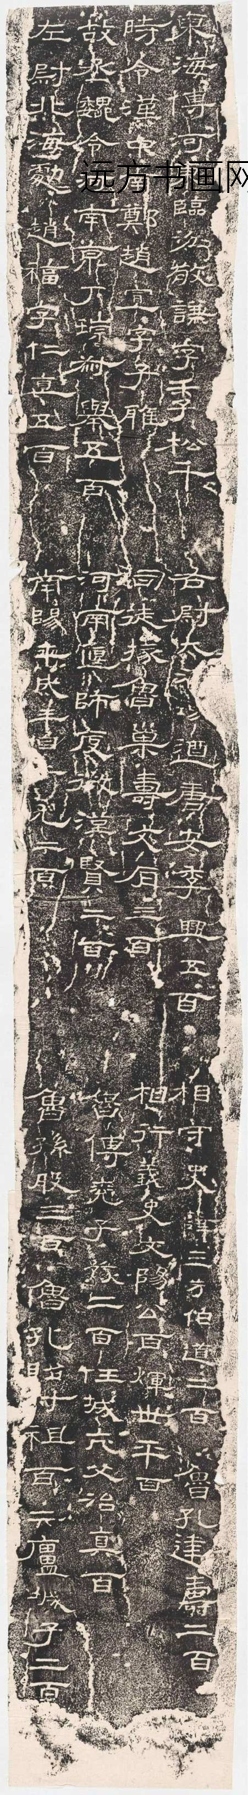 東海傅河東臨汾敬謙字季松千
時令漢中南鄭趙宣字子雅
故丞魏令河南京丁琮叔舉五百
左尉北海劇趙福字仁直五百
右尉九江浚遒唐安季興五百
司徒掾魯巢壽文后三百
河南偃師度徵漢賢二百
南陽平氏王自子尤二百
相守史薛王芳伯道三百 魯孔建壽二百
相行義史文陽公百煇世平百
魯傅兗子豫二百任城亢父治真百
魯孫殷三百魯孔昭叔祖百亓廬城子二百
远方书画网